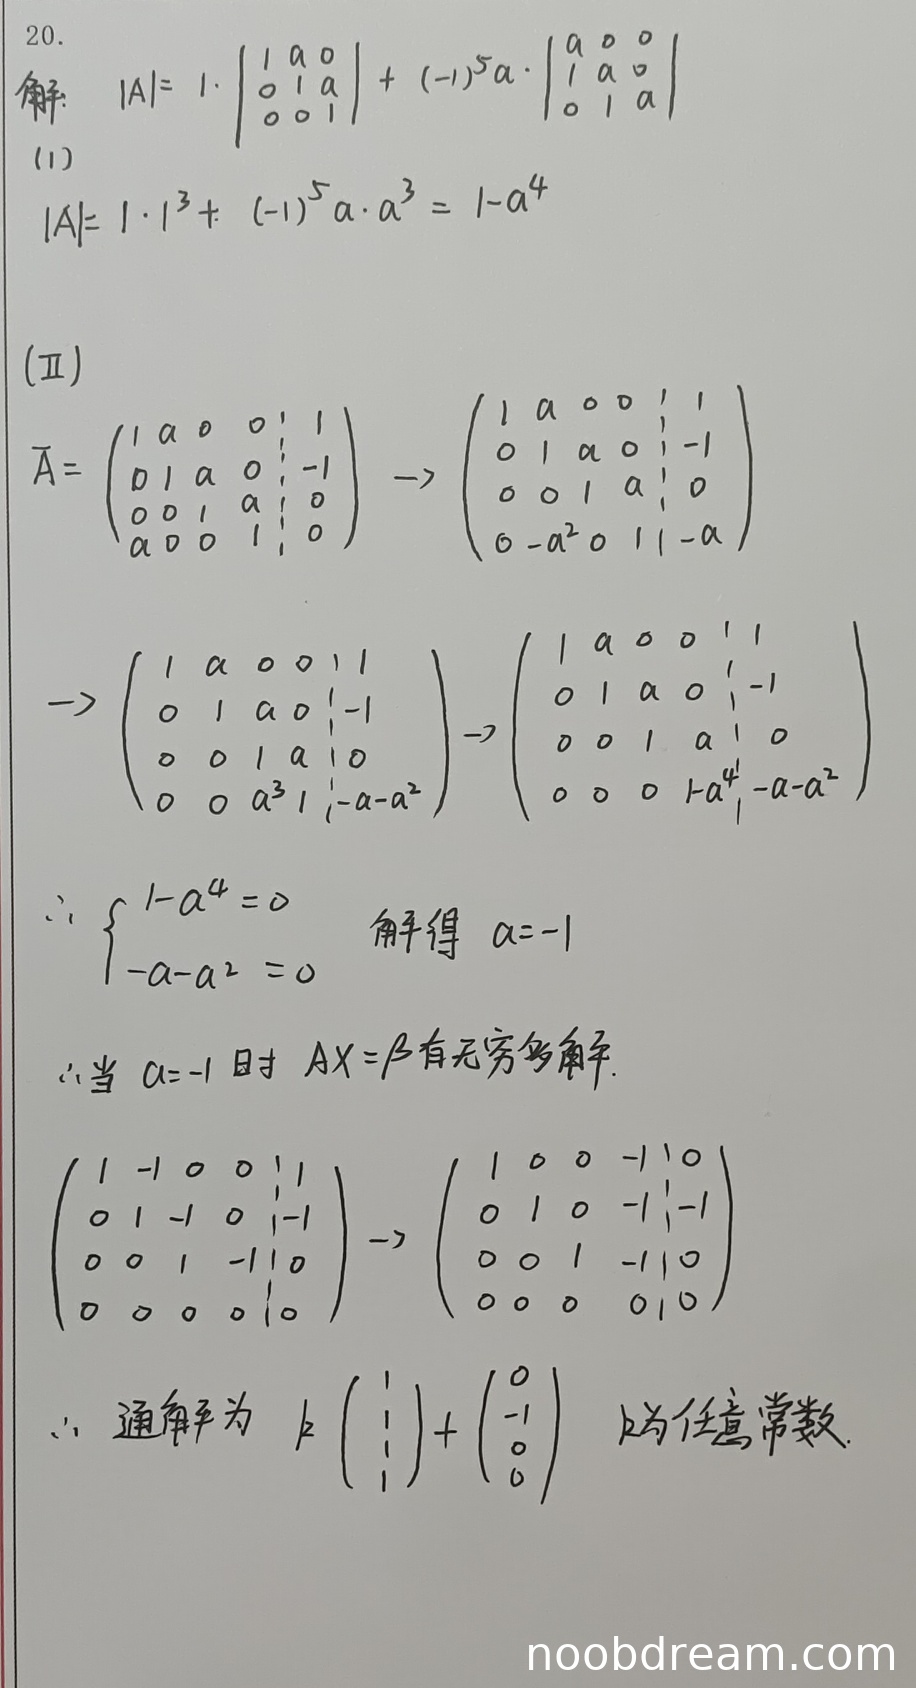 20.
解: |A| = 1· | 1 a 0 ; 0 1 a ; 0 0 1 | + (-1)⁵a · | a 0 0 ; 1 a 0 ; 0 1 a |
(1)
|A| = 1·1³ + (-1)⁵a·a³ = 1-a⁴
(Ⅱ)
Ā = ( 1 a 0 0 ¦ 1 ; 0 1 a 0 ¦ -1 ; 0 0 1 a ¦ 0 ; a 0 0 1 ¦ 0 ) → ( 1 a 0 0 ¦ 1 ; 0 1 a 0 ¦ -1 ; 0 0 1 a ¦ 0 ; 0 -a² 0 1 ¦ -a )
→ ( 1 a 0 0 ¦ 1 ; 0 1 a 0 ¦ -1 ; 0 0 1 a ¦ 0 ; 0 0 a³ 1 ¦ -a-a² ) → ( 1 a 0 0 ¦ 1 ; 0 1 a 0 ¦ -1 ; 0 0 1 a ¦ 0 ; 0 0 0 1-a⁴ ¦ -a-a² )
∴ { 1-a⁴ = 0 ; -a-a² = 0 解得 a=-1
∴当 a=-1 时 AX=β有无穷多解.
( 1 -1 0 0 ¦ 1 ; 0 1 -1 0 ¦ -1 ; 0 0 1 -1 ¦ 0 ; 0 0 0 0 ¦ 0 ) → ( 1 0 0 -1 ¦ 0 ; 0 1 0 -1 ¦ -1 ; 0 0 1 -1 ¦ 0 ; 0 0 0 0 ¦ 0 )
∴ 通解为 k ( 1 ; 1 ; 1 ; 1 ) + ( 0 ; -1 ; 0 ; 0 ) k为任意常数.
noobdream.com